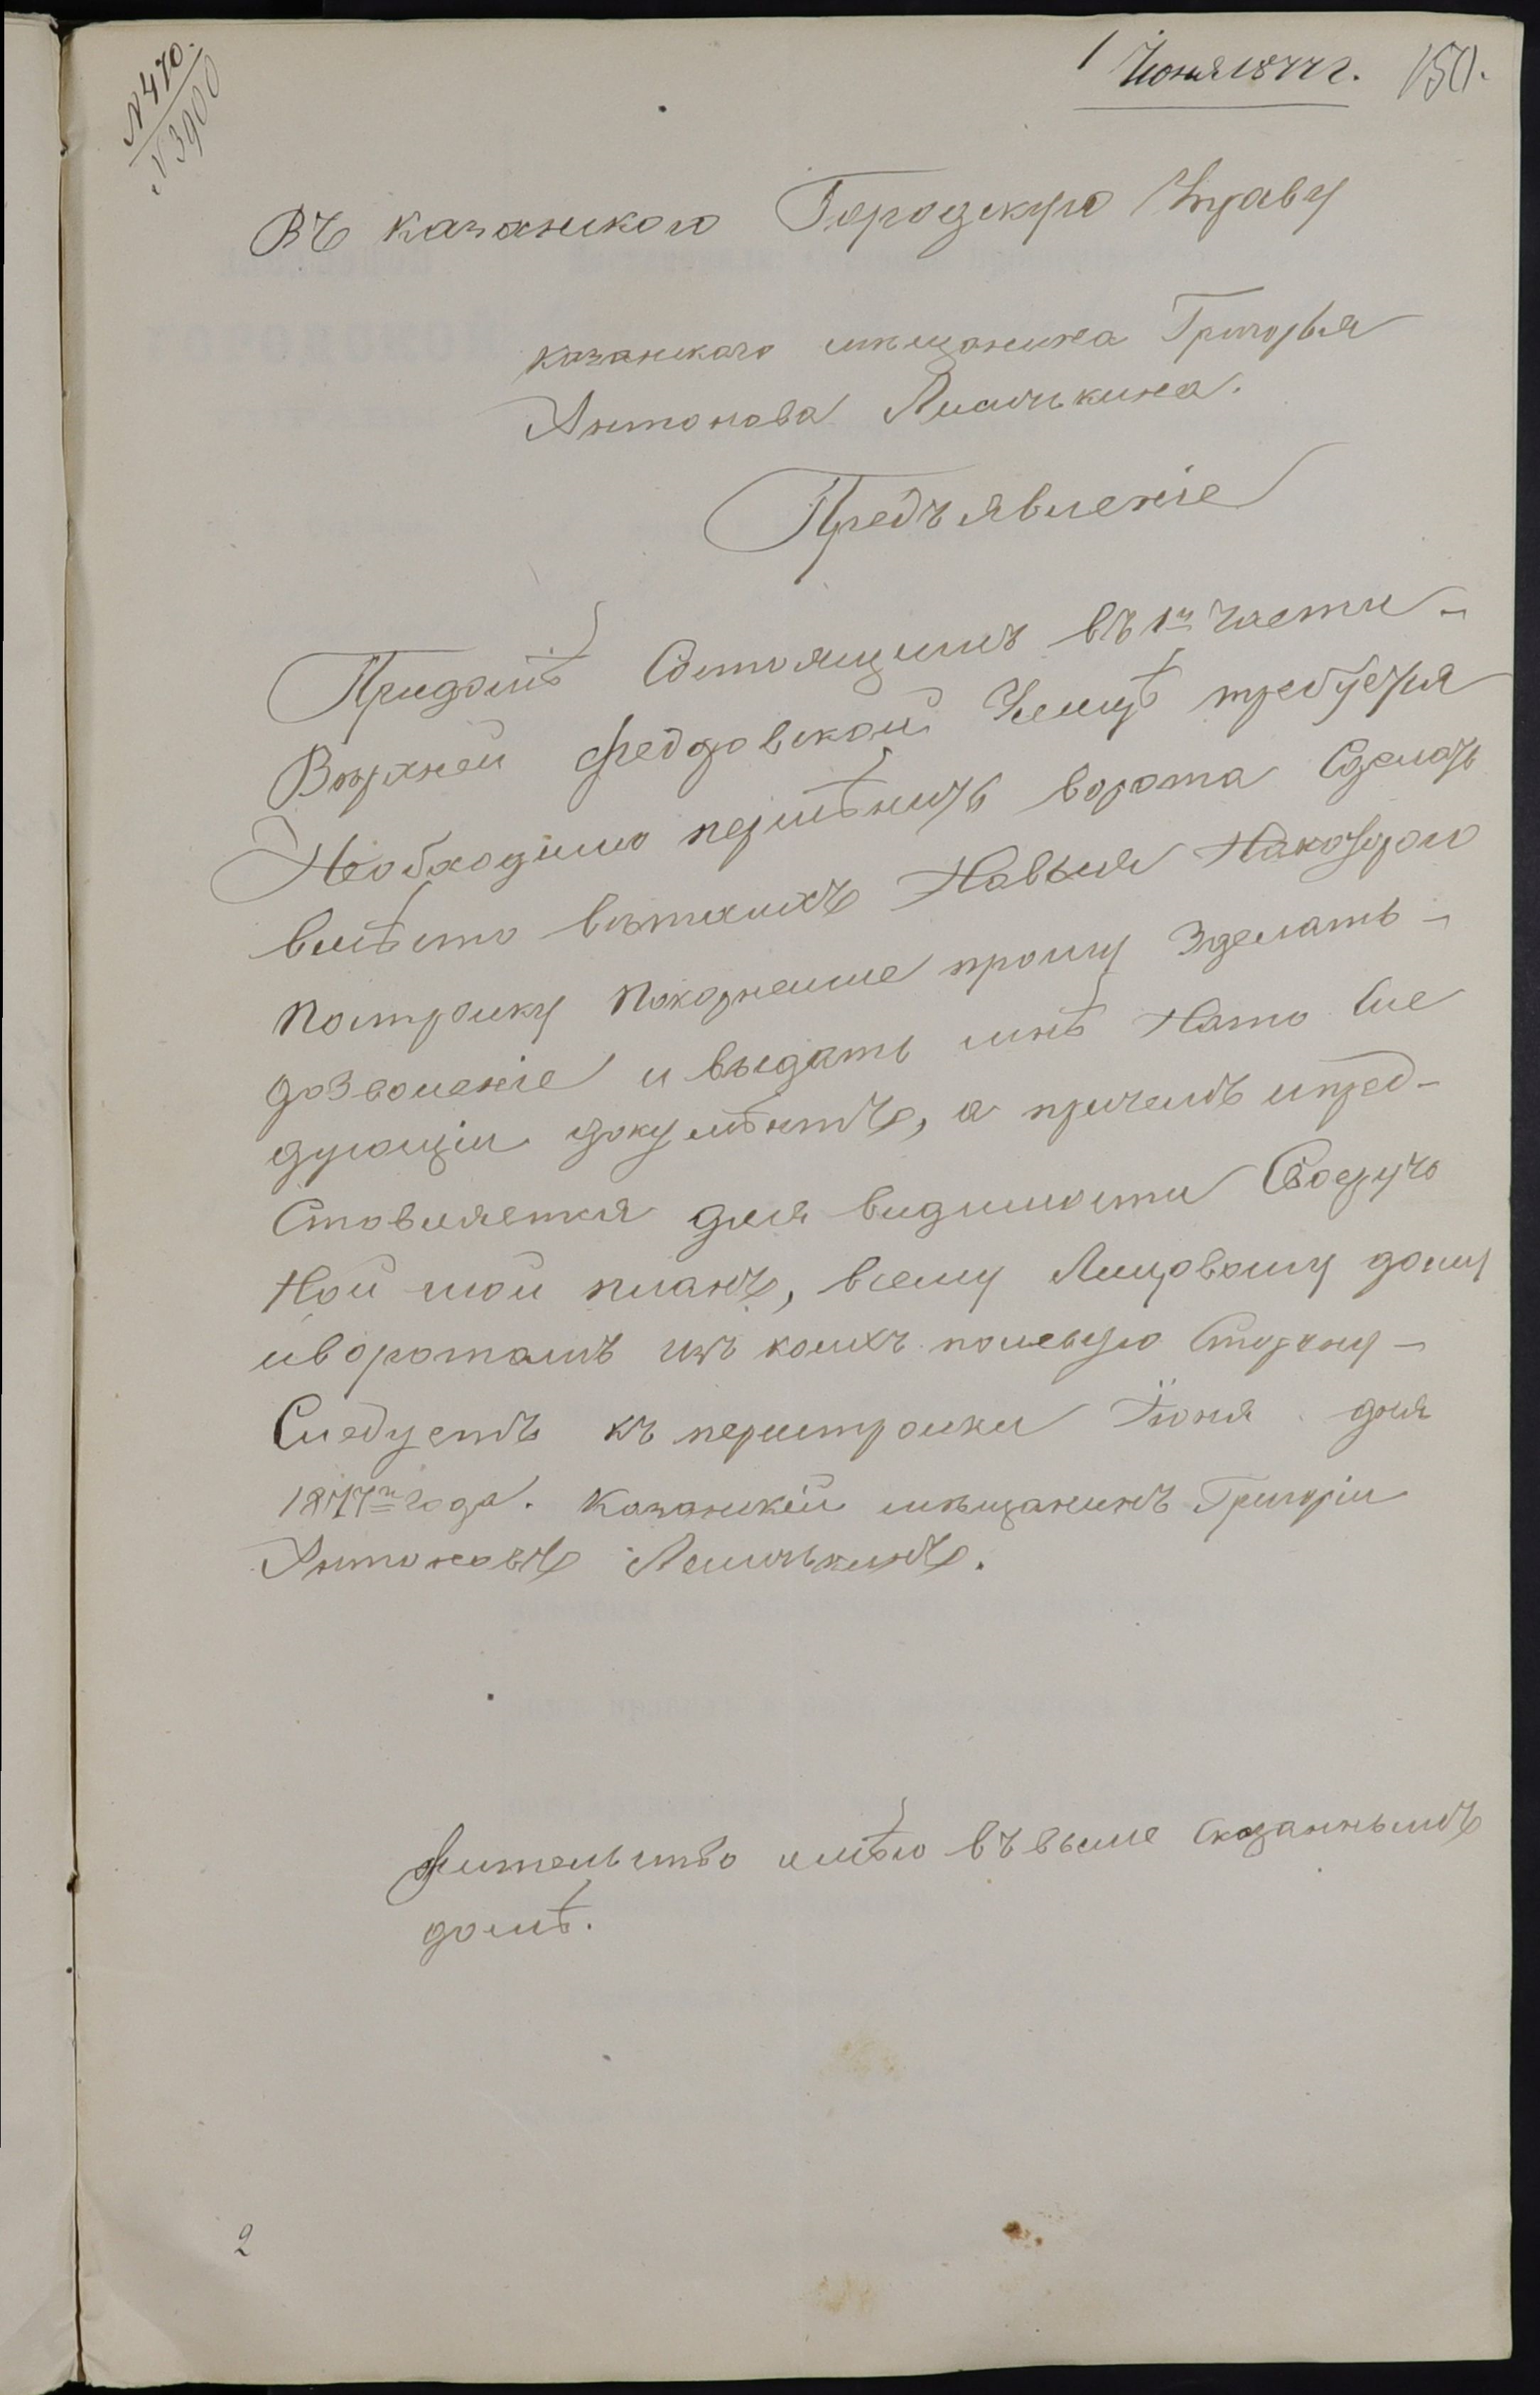 № 470.
№ 3900
1 Июня 1877 г. 150.
Въ казанского Городскую Управу
казанскаго мѣщанина Григорья
Антонова
Предъявленіе
Придомѣ Состоящимъ въ 1й части
Верхней Федоровской Улицѣ требуется
Необходимо перемѣнить ворота Сделать
вмѣсто ветхихъ Новыя Накоторою
постройку Покорнеише прошу Зделать
дозволеніе и выдать мнѣ Нато Сле
дующіи докумѣнтъ, а причемъ ипред-
Ставляется для видимости
Ной мой планъ, всему Лицовому дому
иворотамъ изъ коихъ полевую Сторону
Следуетъ къ перистройки Іюня дня
1877го года. Казанскій мѣщанинъ Григоріи
Антоновъ
Жительство имѣю въ выше сказанномъ
домѣ.
2